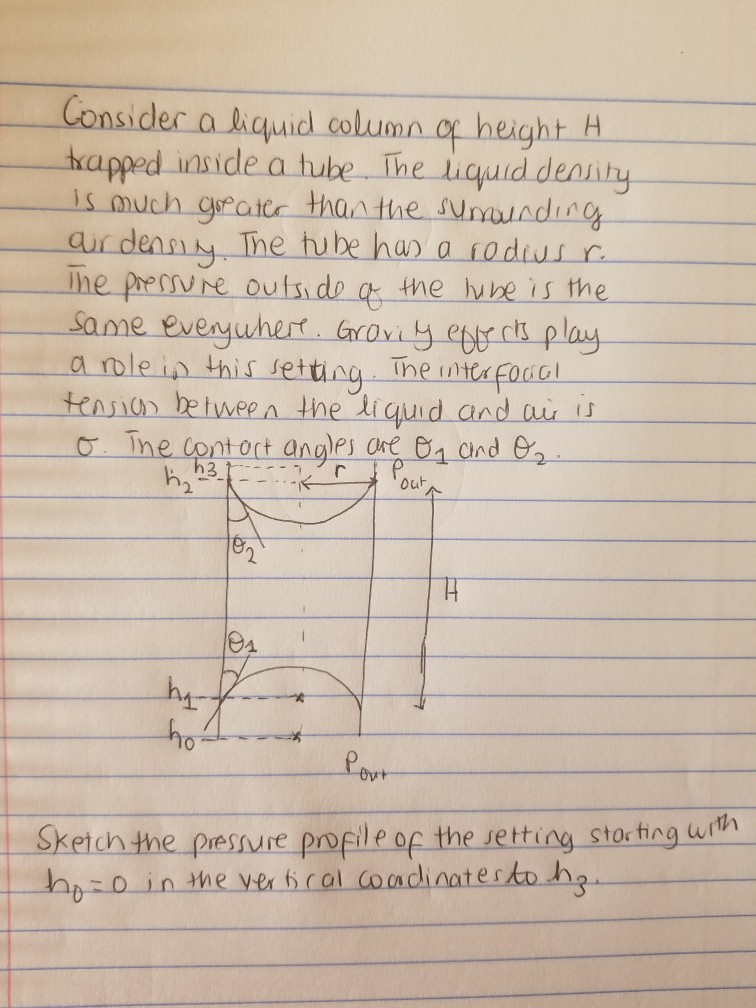 Consider a liquid column of height H
trapped inside a tube. The liquid density
is much greater than the surrounding
air density. The tube has a radius r.
The pressure outside of the tube is the
same everywhere. Gravity effects play
a role in this setting. The interfacial
tension between the liquid and air is
σ. The contact angles are θ1 and θ2.
h3
h2
r
Pout
θ2
H
θ1
h1
h0
Pout
Sketch the pressure profile of the setting starting with
h0=0 in the vertical coordinates to h3.